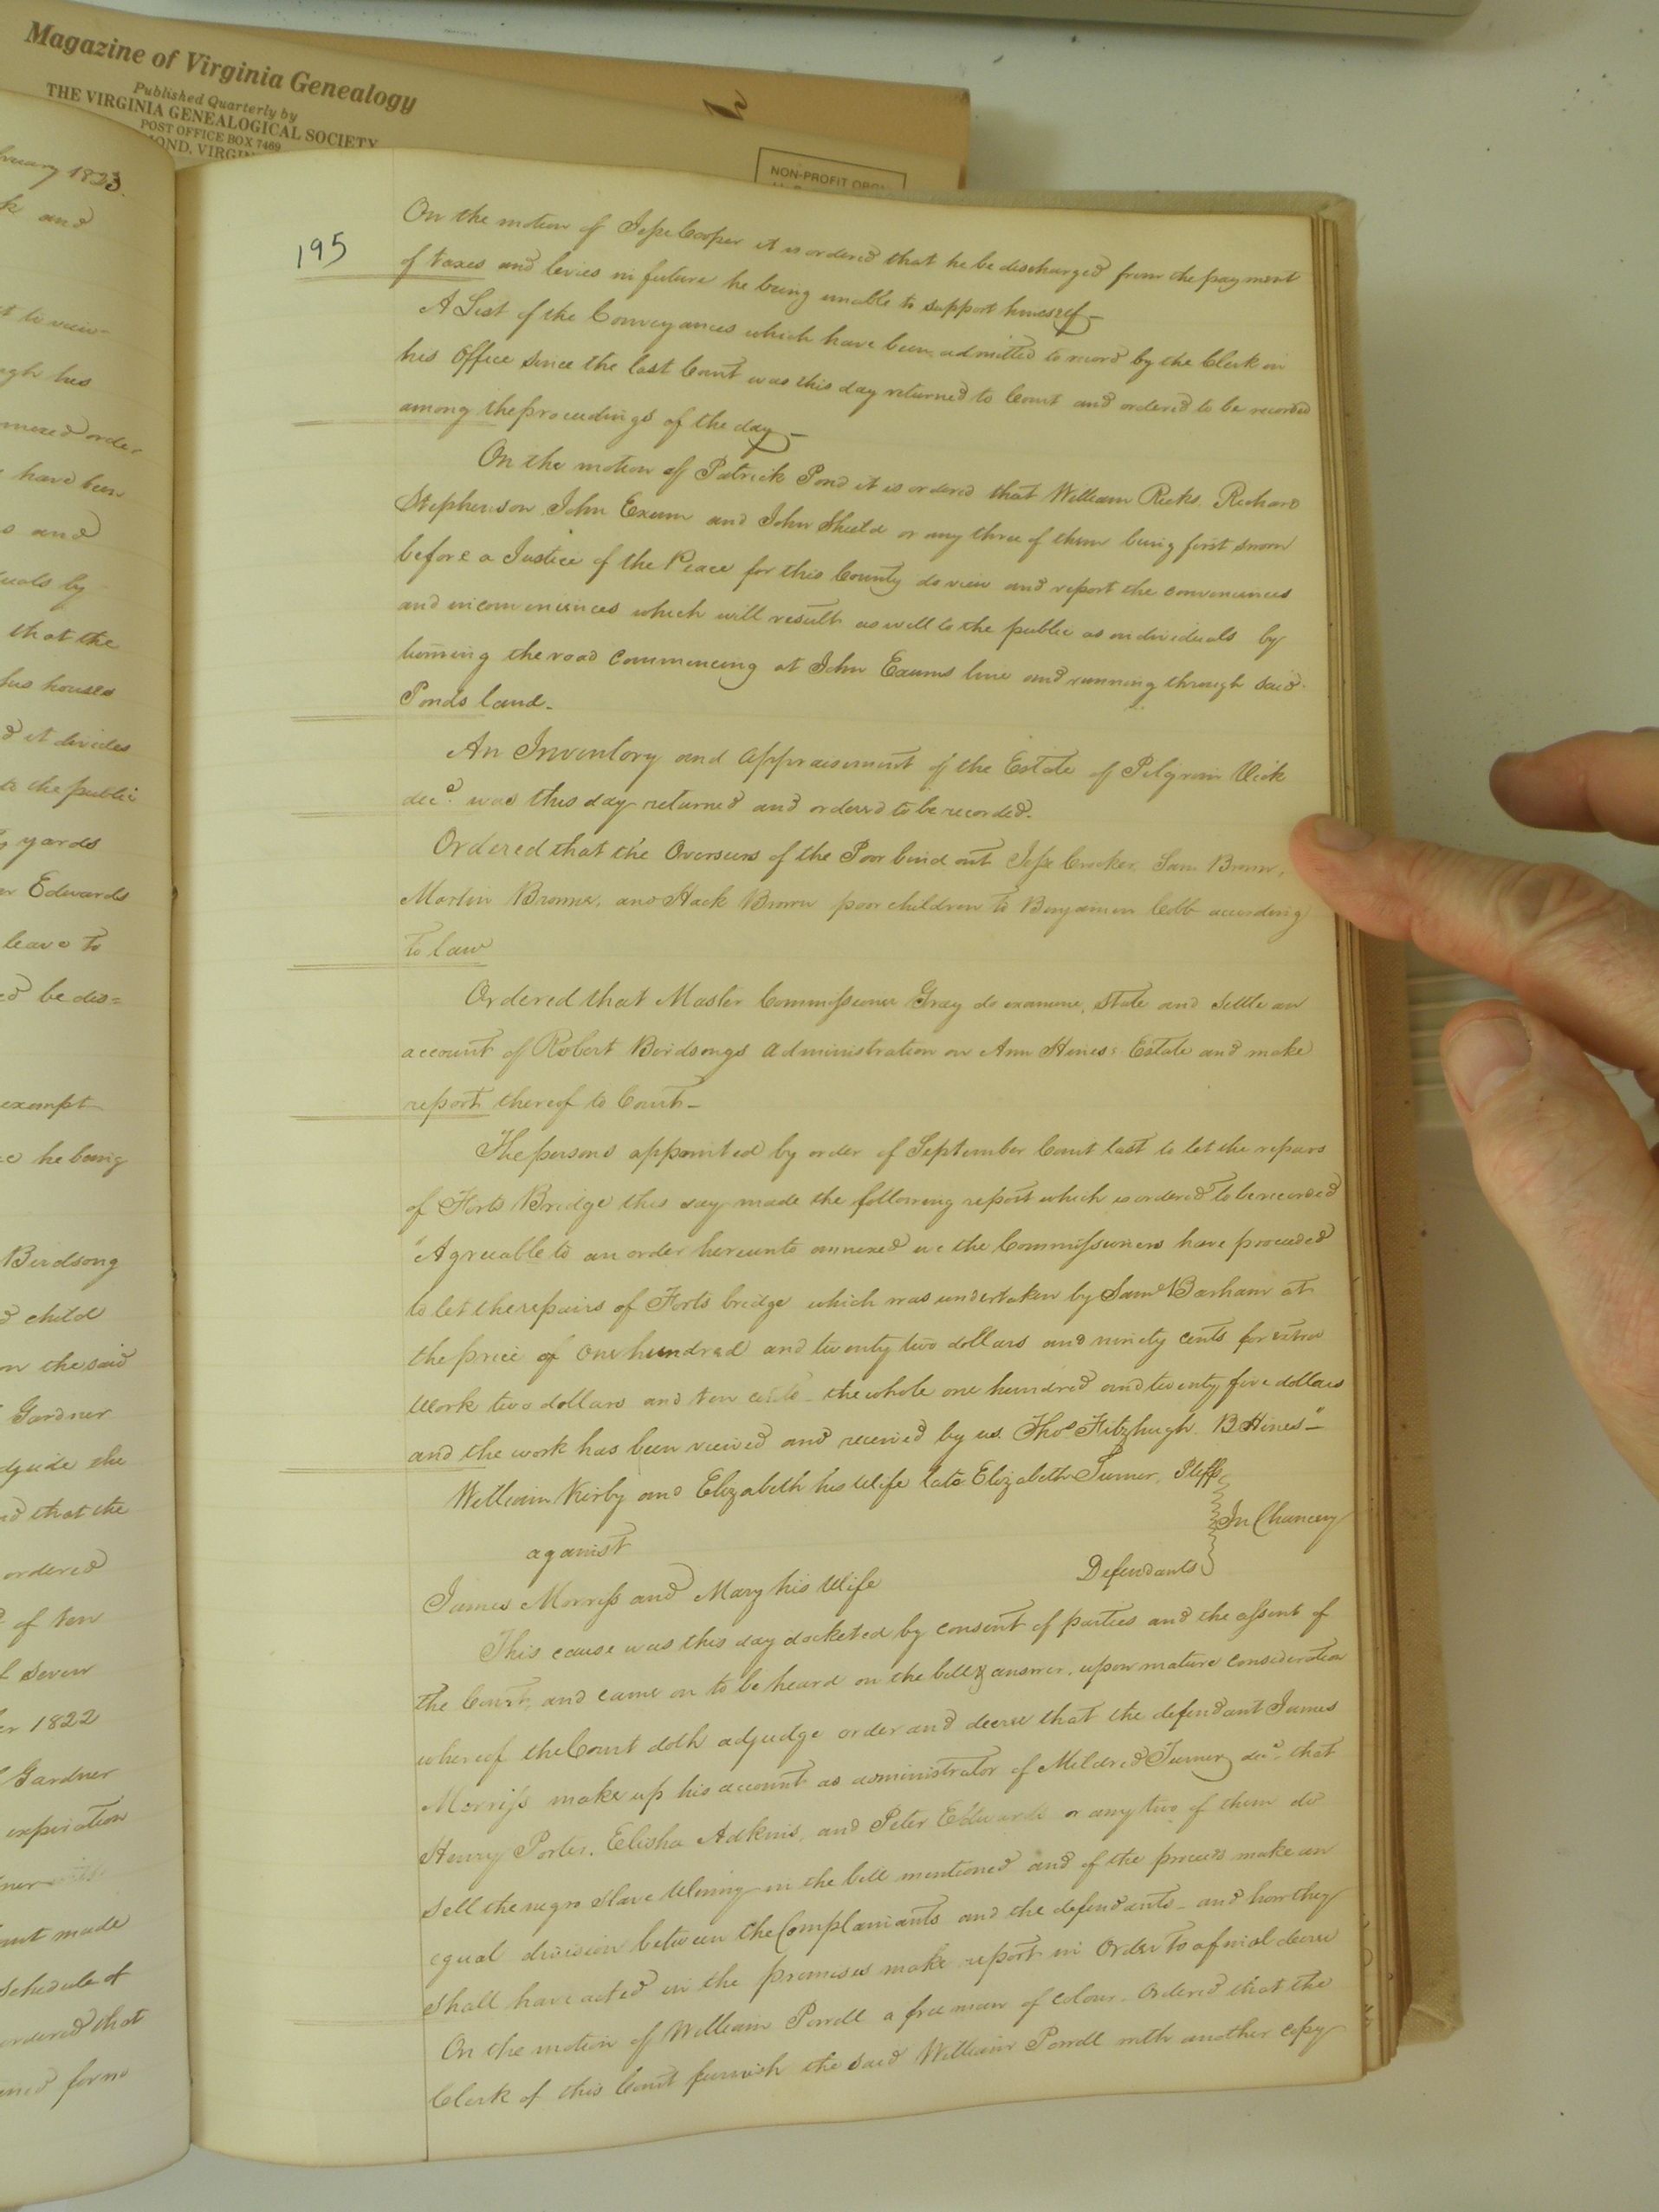 Magazine of Virginia Genealogy
Published Quarterly by
THE VIRGINIA GENEALOGICAL SOCIETY
POST OFFICE BOX 7469
OND, VIRGIN
NON-PROFIT ORG
bruary 1823.
k and
t to view
ugh his
nnexed order
have been
s and
duals by
that the
his houses
d it divides
to the public
yards
Edwards
leave to
ed be dis=
exempt
he being
Birdsong
d child
n the said
Gardner
djudge the
nd that the
ordered
of ten
f seven
er 1822
Gardner
expiration
ner
made
Schedule of
ordered that
ined for no
195
On the motion of Jesse Cooper it is ordered that he be discharged from the payment
of taxes and levies in future he being unable to support himself—
A List of the Conveyances which have been admitted to record by the Clerk in
his Office since the last Court was this day returned to Court and ordered to be recorded
among the proceedings of the day—
On the motion of Patrick Pond it is ordered that William Ricks. Richard
Stephenson John Exum and John Shield or any three of them being first sworn
before a Justice of the Peace for this County do view and report the conveniences
and inconveniences which will result as well to the public as individuals by
turning the road commencing at John Exums line and running through said
Ponds land.
An Inventory and Appraisement of the Estate of Pilgrim Vick
decd. was this day returned and ordered to be recorded.
Ordered that the Overseers of the Poor bind out Jesse Crocker, Sam Brown,
Martin Browne, and Hack Brown poor children to Benjamin Cobb according
to law
Ordered that Master Commissioner Gray do examine, state and settle an
account of Robert Birdsongs administration on Ann Hines's Estate and make
report thereof to Court—
The persons appointed by order of September Court last to let the repairs
of Forts Bridge this day made the following report which is ordered to be recorded
"Agreeable to an order hereunto annexed we the Commissioners have proceeded
to let the repairs of Forts bridge which was undertaken by Saml Barham at
the price of one hundred and twenty two dollars and ninety cents for extra
Work two dollars and ten cents – the whole one hundred and twenty five dollars
and the work has been viewed and received by us. Thos. Fitzhugh. B Hines"—
William Kirby and Elizabeth his Wife late Elizabeth Turner, Pltffs
In Chancery
against
Defendants
James Morriss and Mary his Wife
This cause was this day docketed by consent of parties and the assent of
the Court, and came on to be heard on the bill & answer, upon mature consideration
whereof the Court doth adjudge order and decree that the defendant James
Morriss make up his account as administrator of Mildred Turner decd. that
Henry Porter, Elisha Adkins, and Peter Edwards or any two of them do
sell the negro slave Winny in the bill mentioned and of the proceeds make an
equal division between the Complainants and the defendants – and how they
shall have acted in the premises make report in Order to a final decree
On the motion of William Powell a free man of colour. Ordered that the
Clerk of this Court furnish the said William Powell with another copy